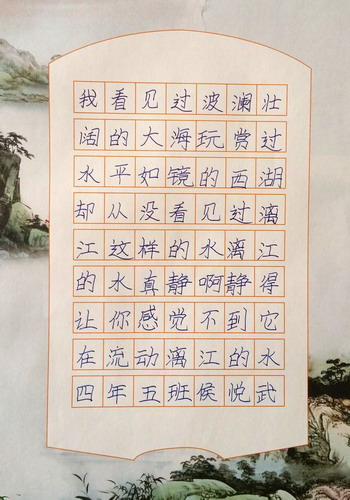 我看见过波澜壮
阔的大海玩赏过
水平如镜的西湖
却从没看见过漓
江这样的水漓江
的水真静啊静得
让你感觉不到它
在流动漓江的水
四年五班侯悦武